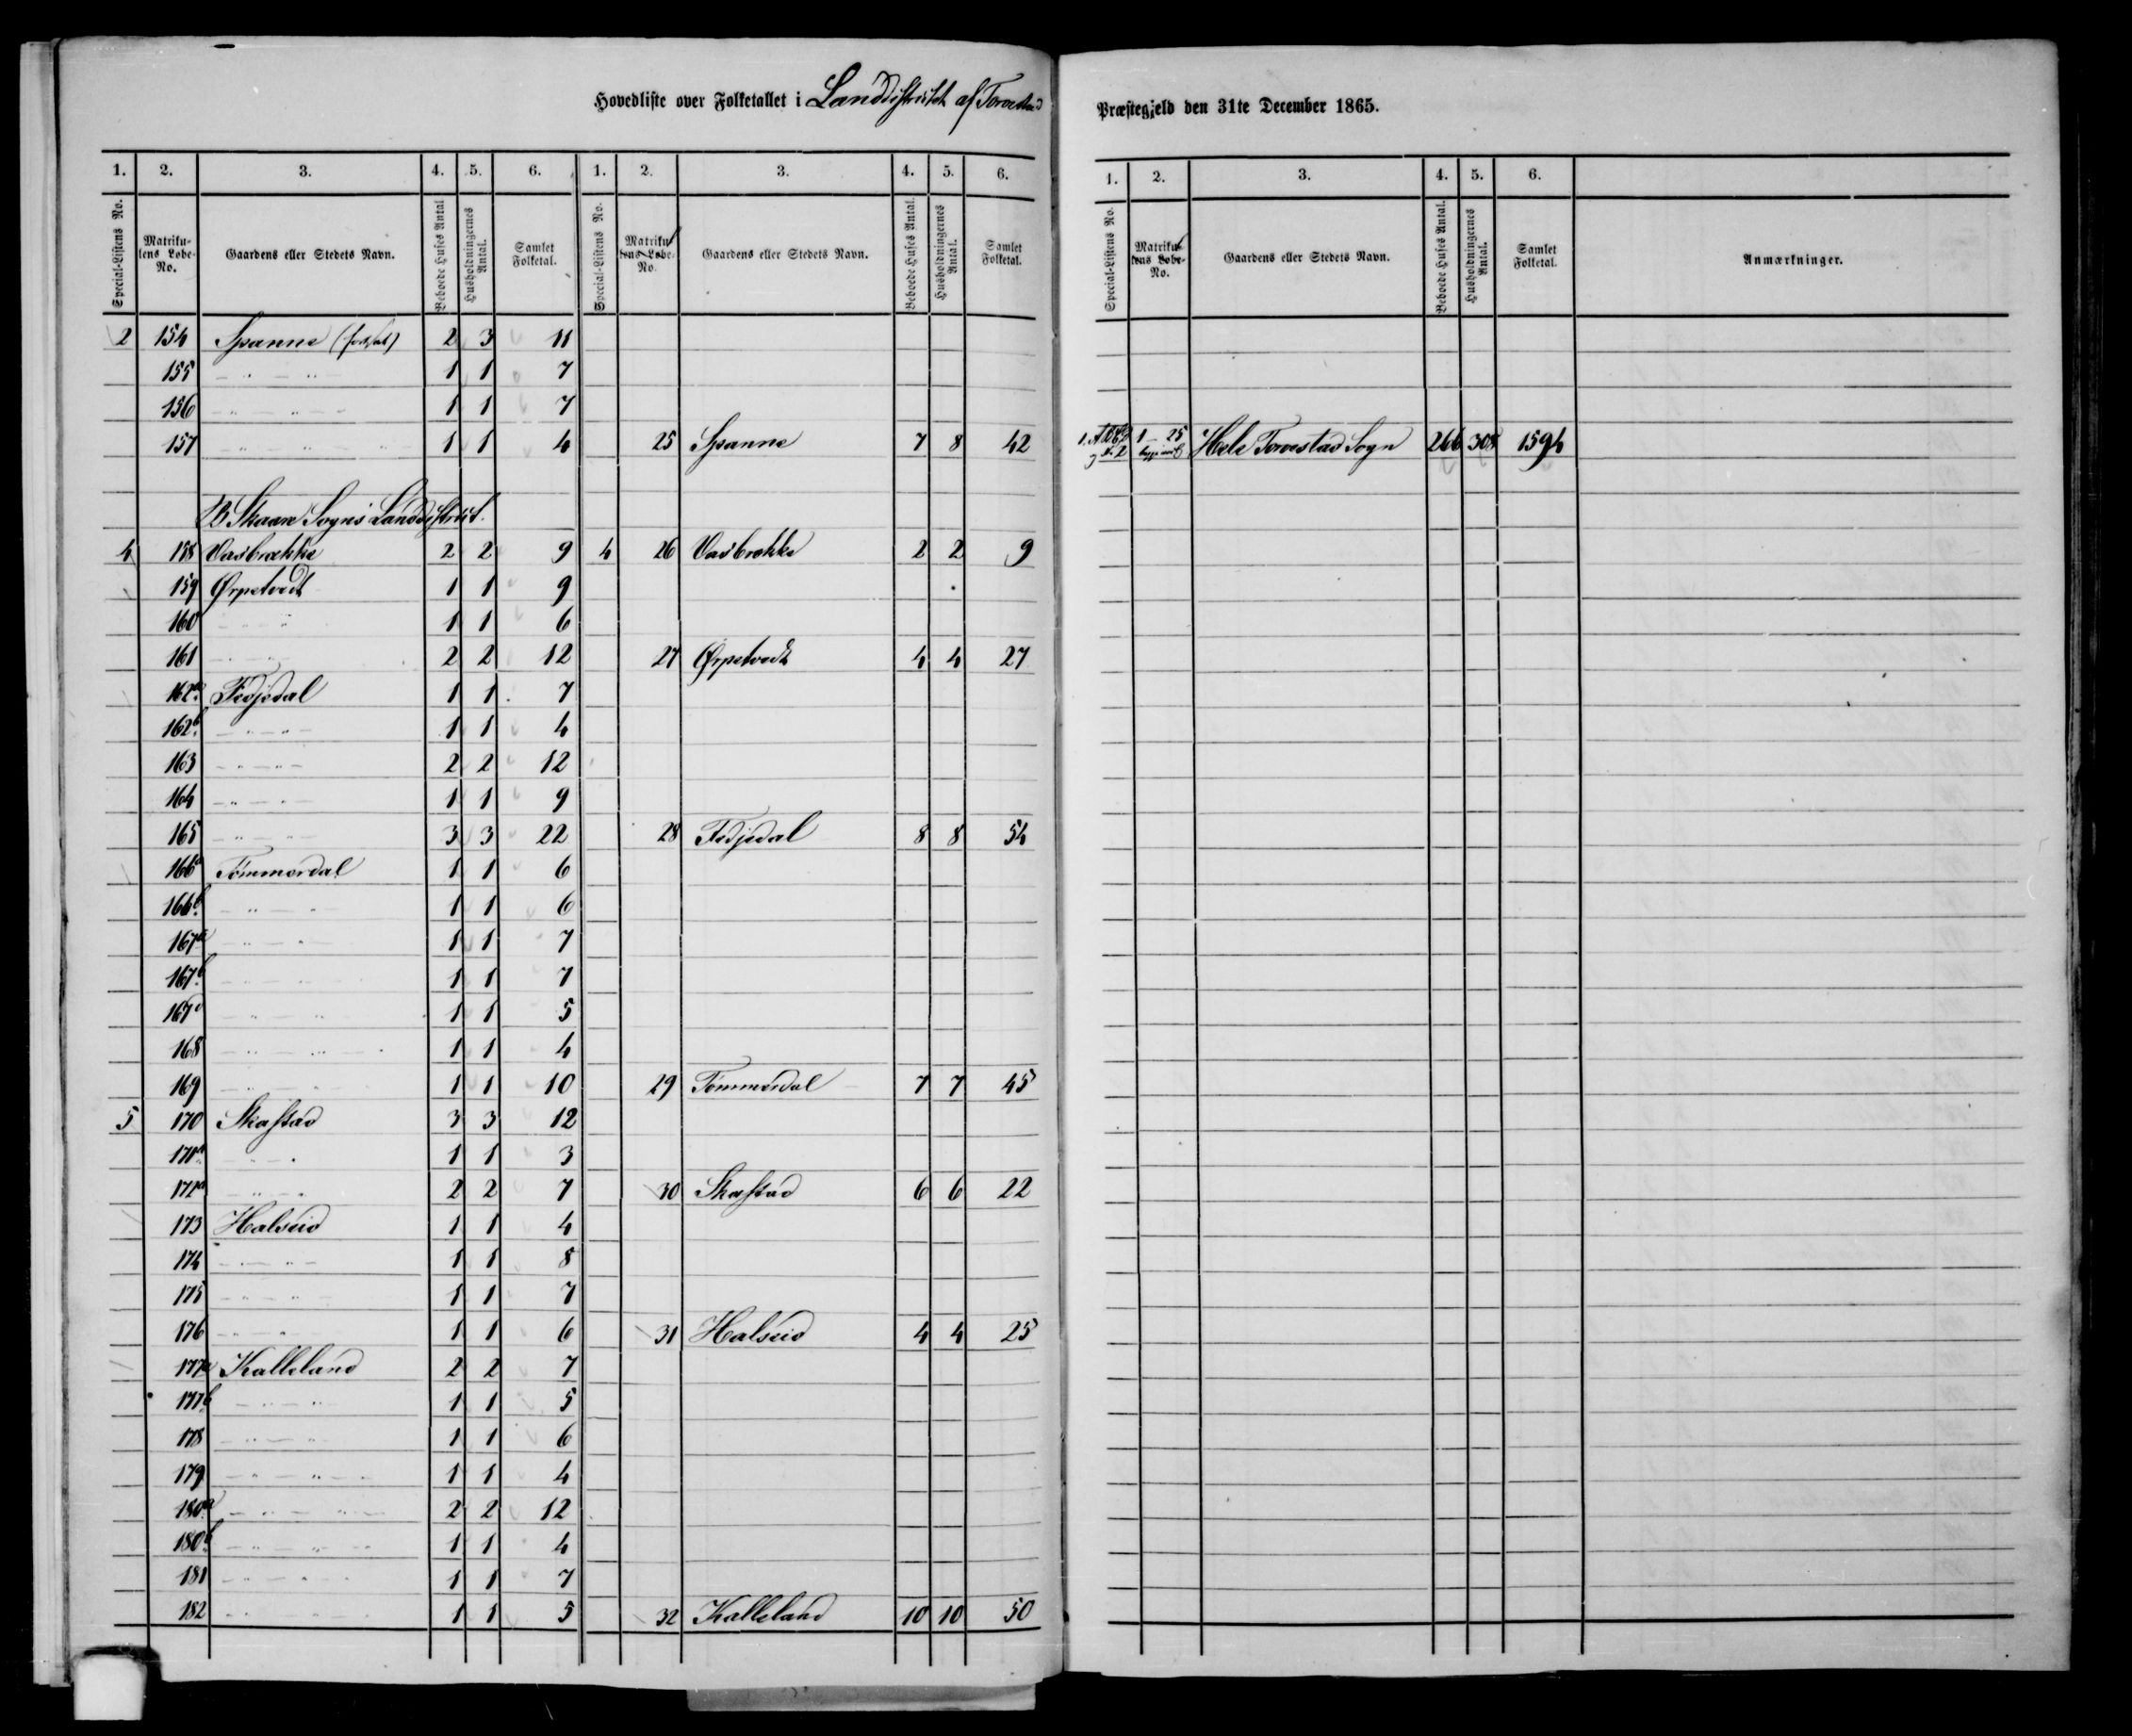 Hovedliste over Folketallet i Landdistriktet af Torvestad
1. 2. 3. 4. 5. 6. 1. 2. 3. 4. 5. 6.
Special-Listens No. Matriku-lens Løbe-No. Gaardens eller Stedets Navn. Beboede Huses Antal Husholdningernes Antal. Samlet Folketal. Special-Listens No. Matriku-lens Løbe-No. Gaardens eller Stedets Navn. Beboede Huses Antal. Husholdningernes Antal. Samlet Folketal.
2 154 Spanne (fortsat) 2 3 11
155 – „ – „ – 1 1 7
156 – „ – „ – 1 1 7
157 – „ – „ – 1 1 4 25 Spanne 7 8 42
B Skaare Sogns Landdistrict.
4 158 Vasbrække 2 2 9 4 26 Vasbrække 2 2 9
159 Ørpetvedt 1 1 9
160 – „ – „ 1 1 6
161 – „ – „ 2 2 12 27 Ørpetvedt 4 4 27
162a Fedjedal 1 1 7
162b. – „ – „ – 1 1 4
163 – „ – „ – 2 2 12
164 – „ – „ – 1 1 9
165 – „ – „ – 3 3 22 28 Fedjedal 8 8 54
166a Tømmerdal 1 1 6
166b. – „ – „ 1 1 6
167a – „ – „ – 1 1 7
167b – „ – „ – 1 1 7
167c – „ – „ 1 1 5
168 – „ – „ – „ 1 1 4
169 – „ – „ 1 1 10 29 Tømmerdal 7 7 45
5 170 Skaftad 3 3 12
171a. – „ – „ 1 1 3
172a – „ – „ 2 2 7 30 Skaftad 6 6 22
173 Halseid 1 1 4
174 – „ – „ – 1 1 8
175 – „ – „ – 1 1 7
176 – „ – „ – 1 1 6 31 Halseid 4 4 25
177a Kalleland 2 2 7
177b – „ – „ 1 1 5
178 – „ – „ 1 1 6
179 – „ – „ – „ 1 1 4
180a – „ – „ – 2 2 12
180b – „ – „ – 1 1 4
181 – „ – „ – 1 1 7
182 – „ – „ 1 1 5 32 Kalleland 10 10 50
Præstegjeld den 31te December 1865.
1. 2. 3. 4. 5. 6.
Special-Listens No. Matriku-lens Løbe-No. Gaardens eller Stedets Navn. Beboede Huses Antal. Husholdningernes Antal. Samlet Folketal. Anmærkninger.
1–25 Hele Torvestad Sogn 266 308 1594